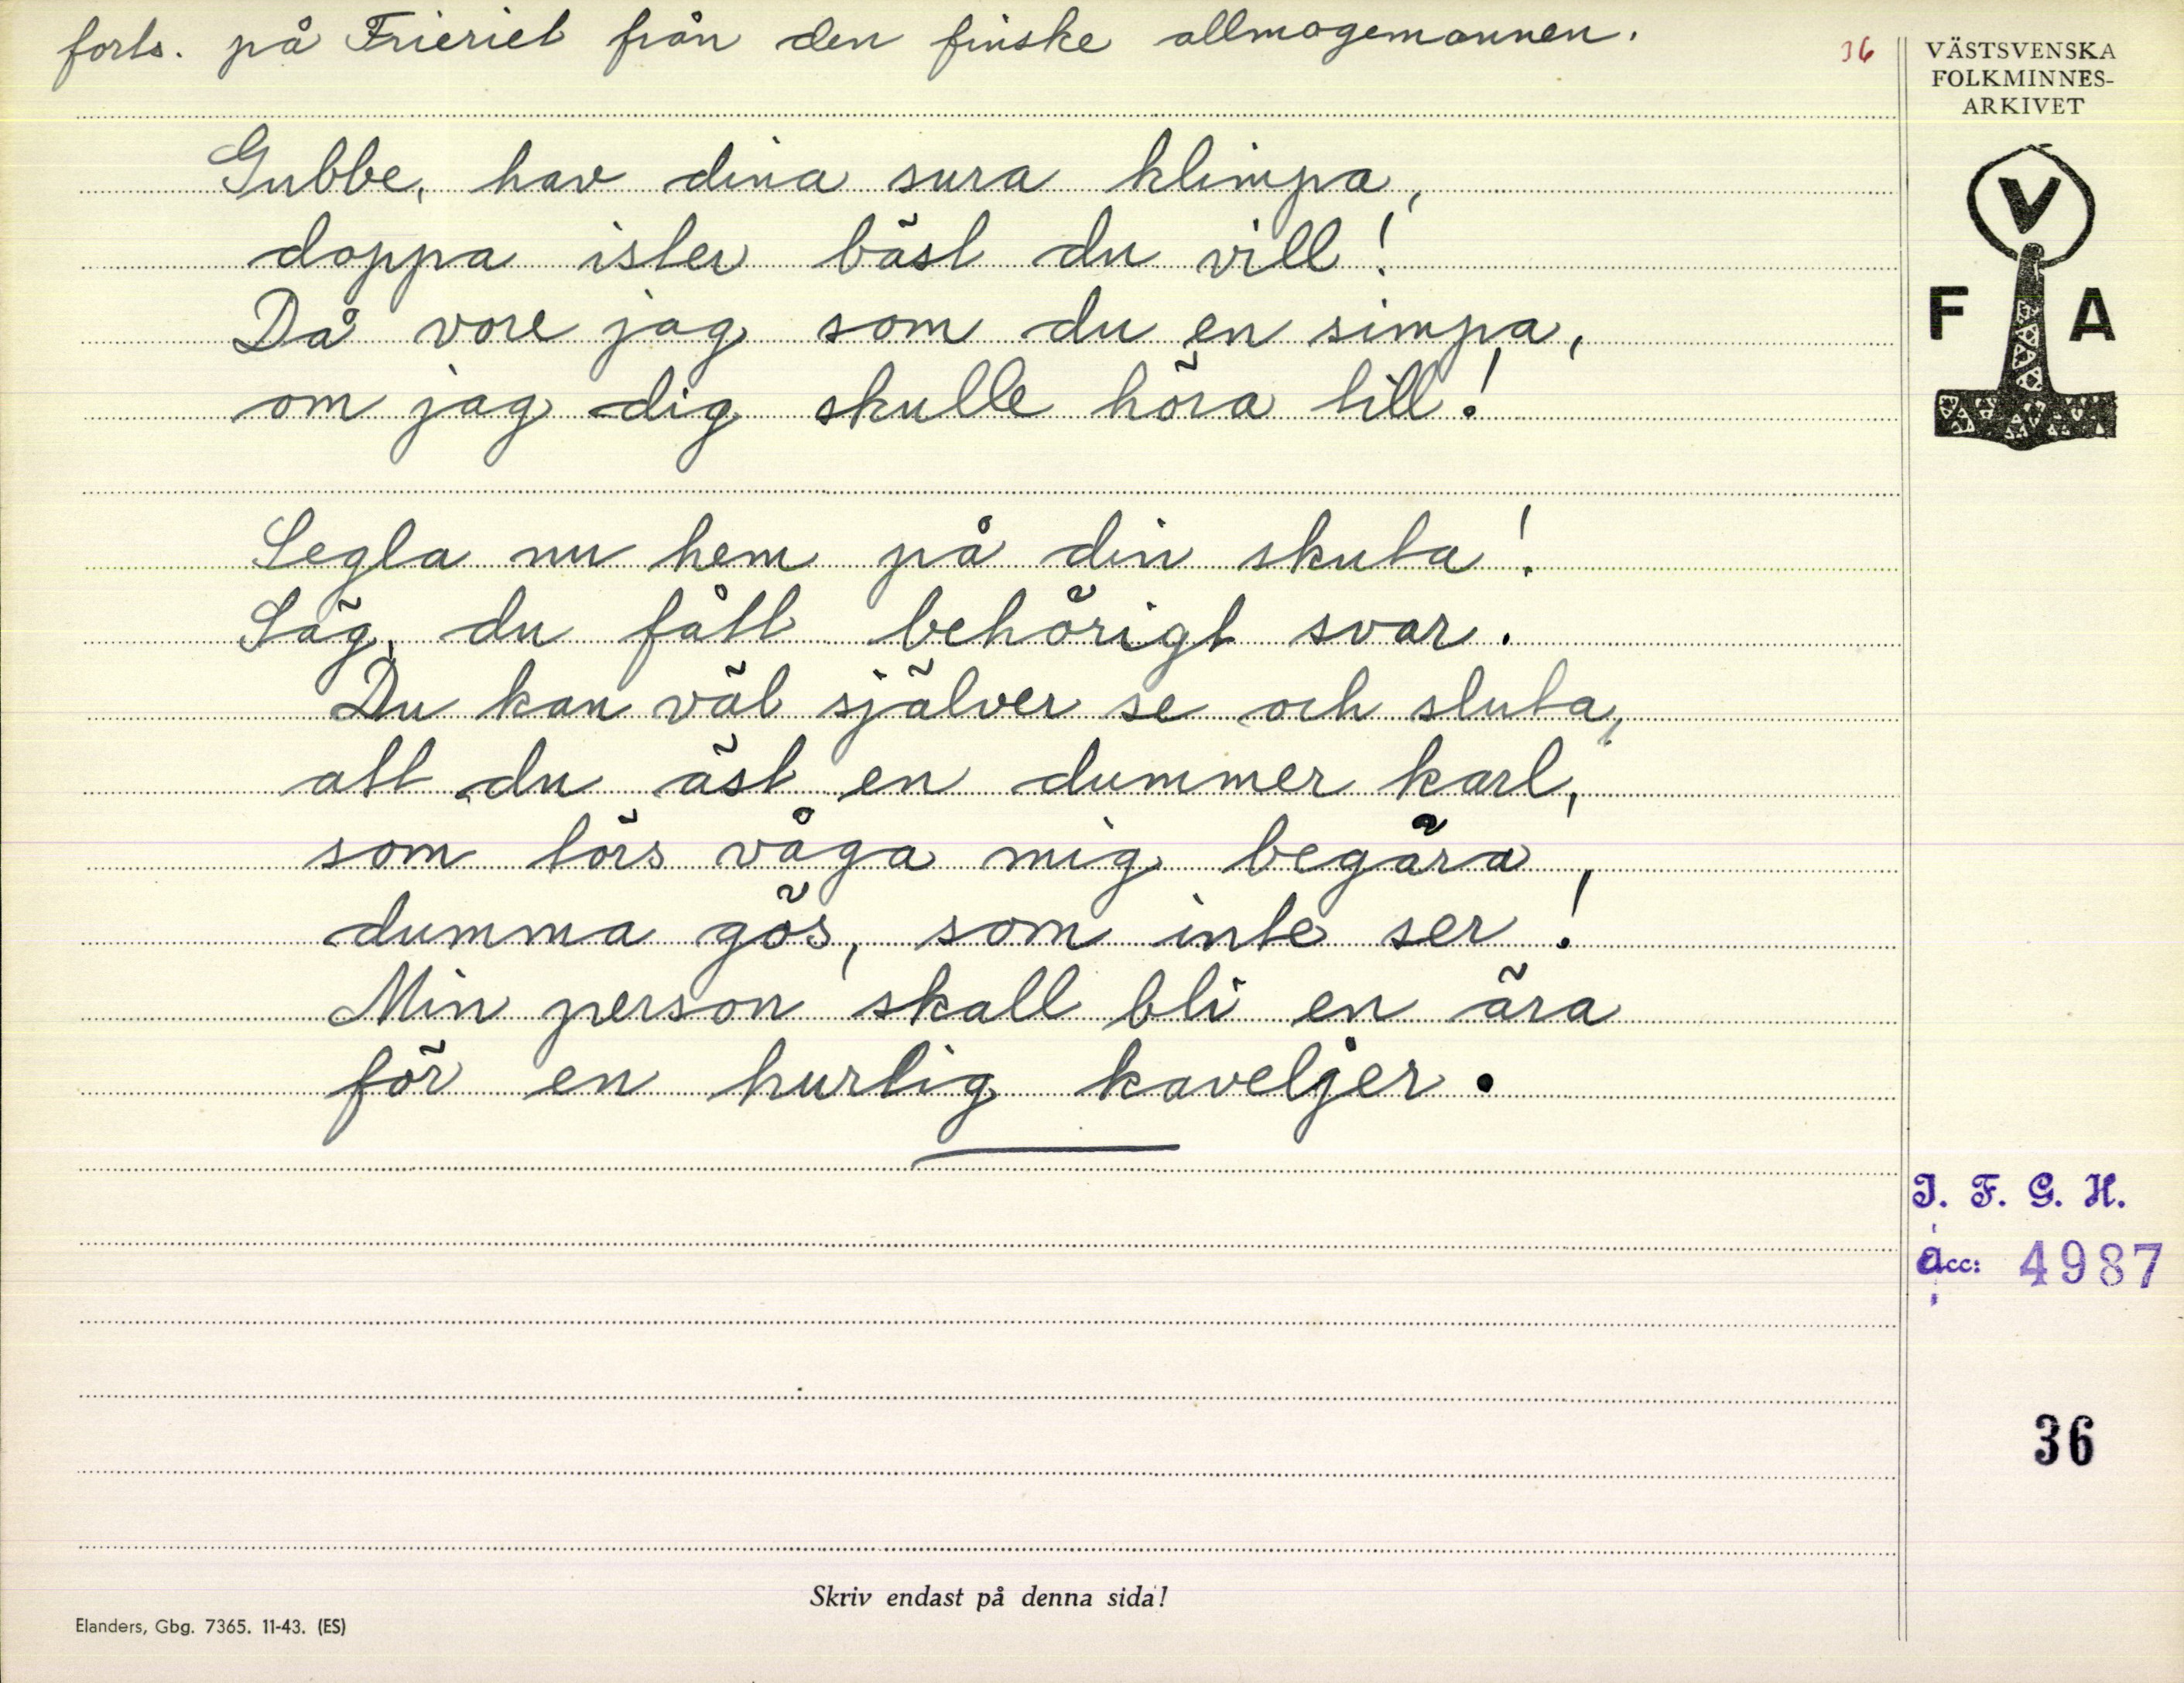 forts. på Frieriet från den finske allmogemannen.
36
VÄSTSVENSKA
FOLKMINNES-
ARKIVET
V
F A
Gubbe, hav dina sura klimpa,
doppa ister bäst du vill!
Då vore jag som du en simpa,
om jag dig skulle höra till!
Segla nu hem på din skuta!
Säg, du fått behörigt svar.
Du kan väl själver se och sluta,
att du äst en dummer karl,
som törs våga mig begära,
dumma gös, som inte ser!
Min person skall bli en ära
för en hurtig kaveljer.
I. F. G. H.
Acc: 4987
36
Skriv endast på denna sida!
Elanders, Gbg. 7365. 11-43. (ES)